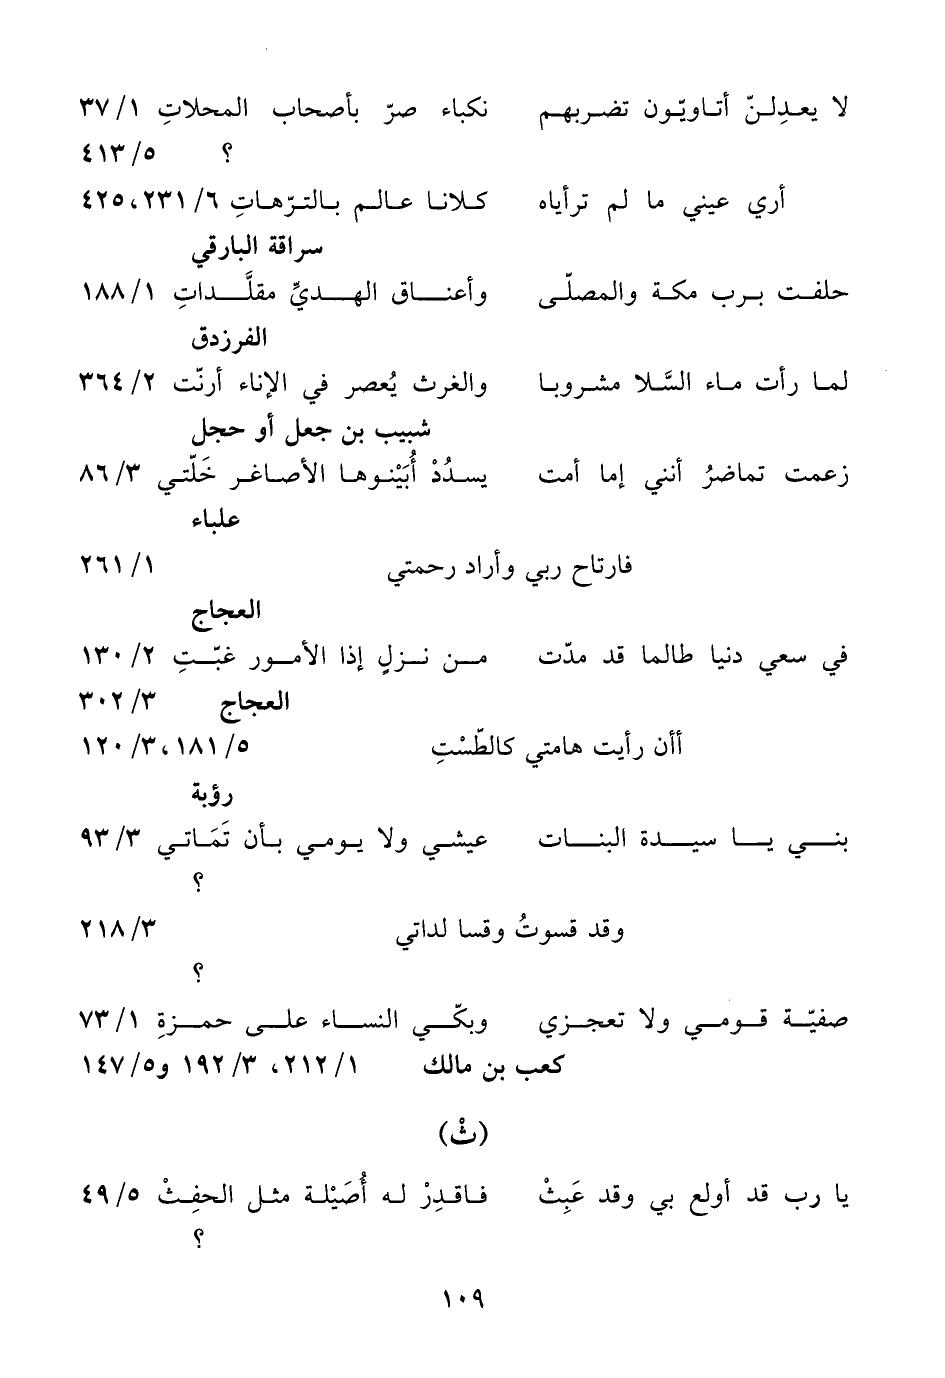 لا يعدِلنّ أتاويّون تضربهم نكباء صرّ بأصحاب المحلاتِ ١/ ٣٧
؟ ٥/ ٤١٣
أري عيني ما لم ترأياه كلانا عالم بالترّهاتِ ٦/ ٢٣١، ٤٢٥
سراقة البارقي
حلفت برب مكة والمصلّى وأعناق الهديِّ مقلَّداتِ ١/ ١٨٨
الفرزدق
لما رأت ماء السَّلا مشروبا والغرث يُعصر في الإناء أرنّت ٢/ ٣٦٤
شبيب بن جعل أو حجل
زعمت تماضرُ أنني إما أمت يسدُدْ أُبَيْنوها الأصاغر خَلّتي ٣/ ٨٦
علباء
فارتاح ربي وأراد رحمتي ١/ ٢٦١
العجاج
في سعي دنيا طالما قد مدّت من نزلٍ إذا الأمور غبّتِ ٢/ ١٣٠
العجاج ٣/ ٣٠٢
أأن رأيت هامتي كالطّسْتِ ٥/ ١٨١، ٣/ ١٢٠
رؤبة
بني يا سيدة البنات عيشي ولا يومي بأن تَمَاتي ٣/ ٩٣
؟
وقد قسوتُ وقسا لداتي ٣/ ٢١٨
؟
صفيّة قومي ولا تعجزي وبكّي النساء على حمزةِ ١/ ٧٣
كعب بن مالك ١/ ٢١٢، ٣/ ١٩٢ و٥/ ١٤٧
(ثْ)
يا رب قد أولع بي وقد عَبِثْ فاقدِرْ له أُصَيْلة مثل الحفِثْ ٥/ ٤٩
؟
١٠٩